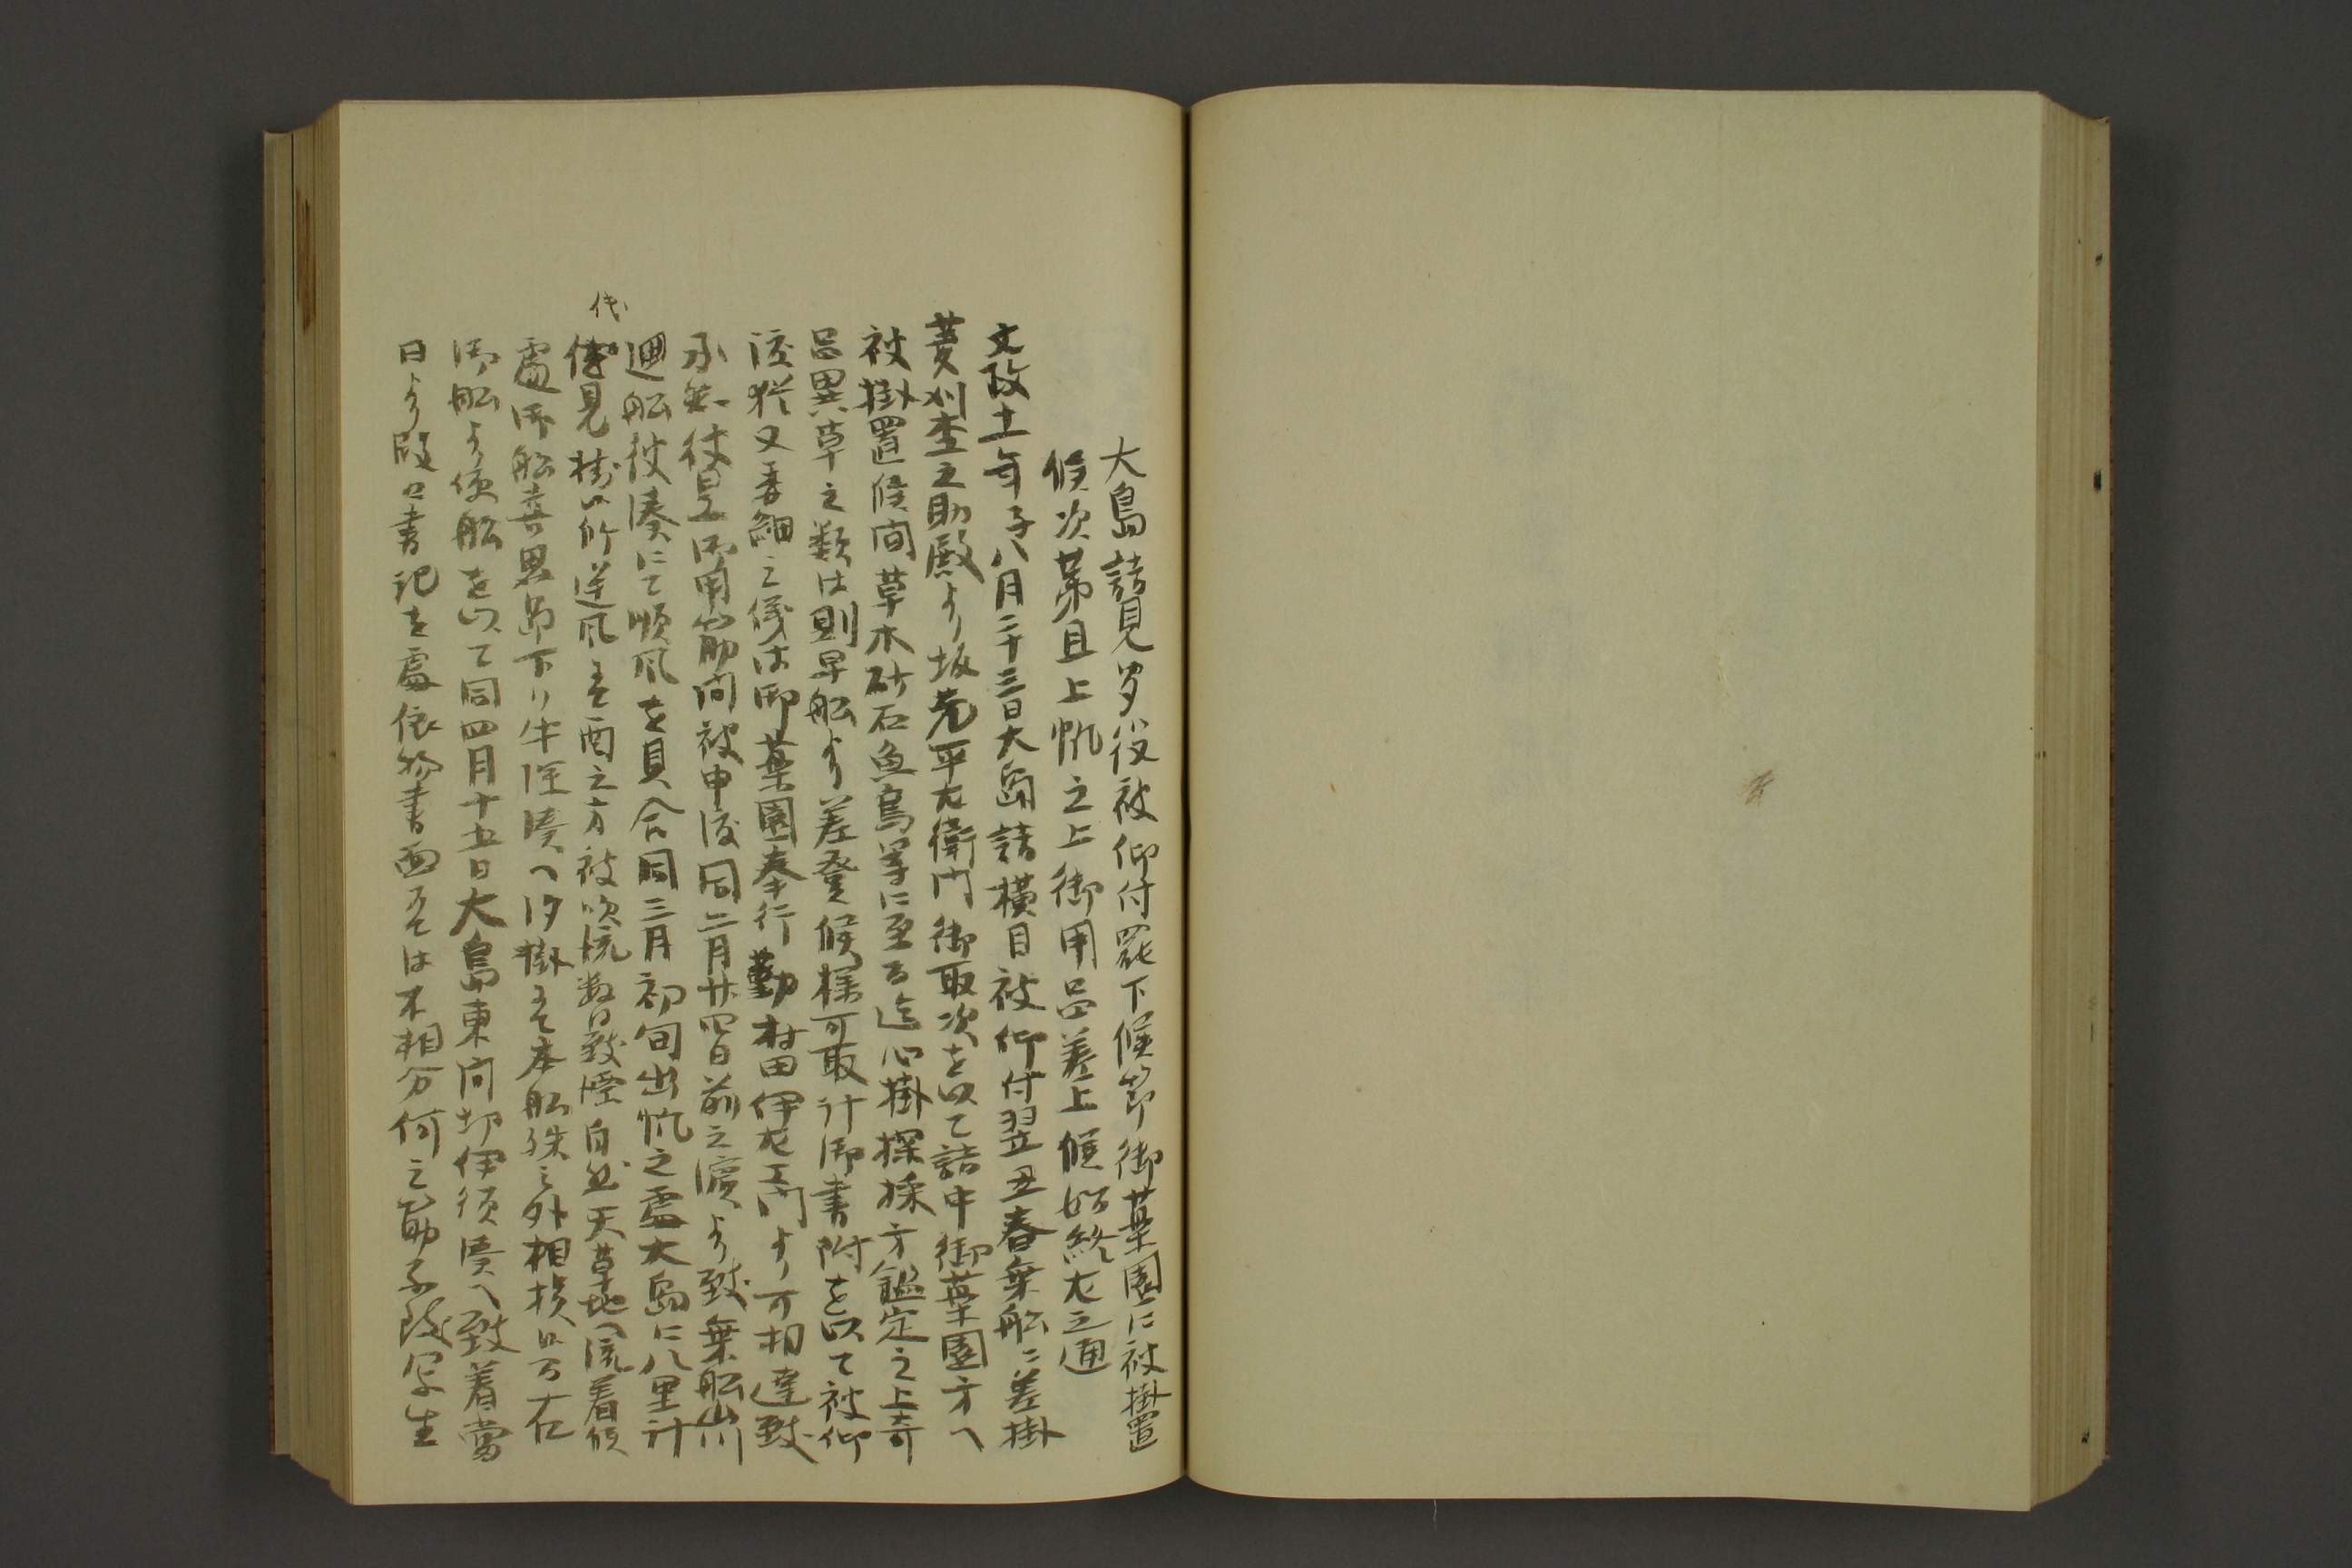 大島詰見聞役被仰付罷下候節御薬園に被掛置
候次第且上帆之上御用品差上候始終左之通
文政十一年子八月二十三日大島詰横目被仰付翌丑春乗船ニ差掛
菱刈杢之助殿より坂元平左衛門御取次を以て詰中御薬園方へ
被掛置候間草木砂石魚鳥等に至る迄心掛探採方鑑定之上奇
品異草之類は則早船より差登候様可取計御書附を以て被仰
渡猶又委細之儀は御薬園奉行勤村田伊左エ門より可相達致
承知彼是御用筋向被申渡同二月廿四日前之濱より致乗船山川
廻船彼湊にて順風を見合同三月初旬出帆之處大島に八里計
代
傳見掛候所逆風にて酉之方被吹流数日致漂白然天草地へ流着候
處御船喜界島下り牛深湊へ汐掛にて本船殊之外相損候百右
御船より便船を以て同四月十五日大島東間切伊須湊へ致着當
日より段々書記を處依物書面にては不相分何之筋不段写生